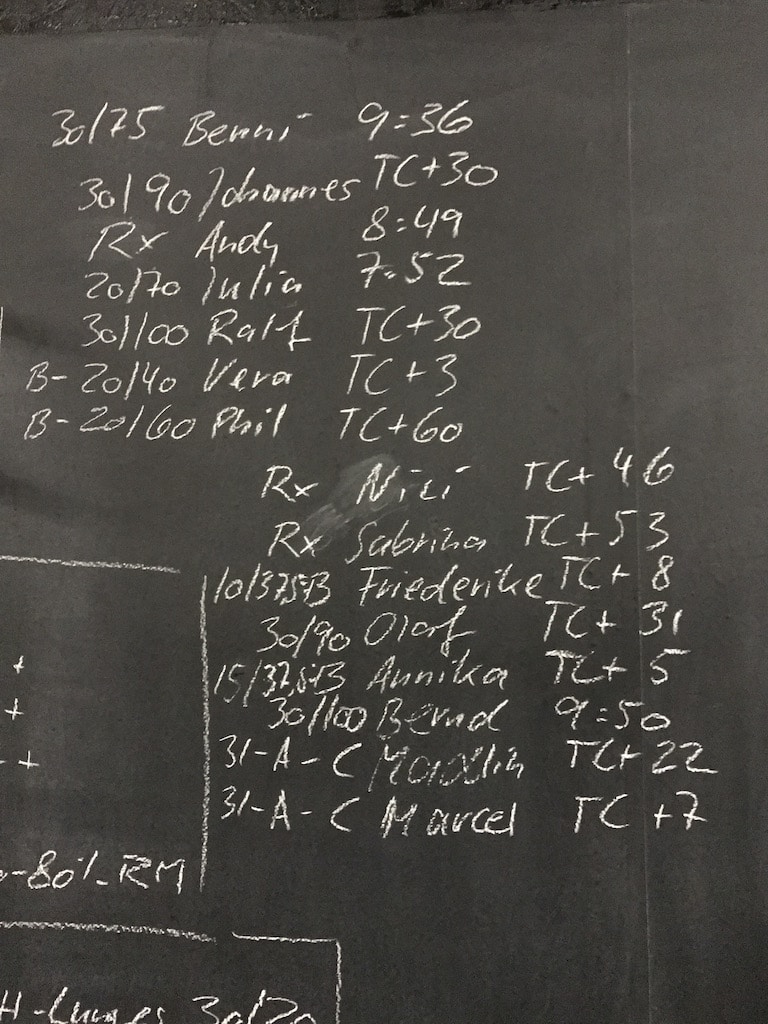 30/75 Benni 9:36
30/90 Johannes TC+30
Rx Andy 8:49
20/70 Julia 7:52
30/100 Ralf TC+30
B-20/40 Vera TC+3
B-20/60 Phil TC+60
Rx Nici TC+46
Rx Sabrina TC+53
10/37,5+B Friederike TC+8
30/90 Olaf TC+31
15/37,5+B Annika TC+5
30/100 Bernd 9:50
31-A-C TC+22
31-A-C Marcel TC+7
+
+
+
-80%-RM
30/20